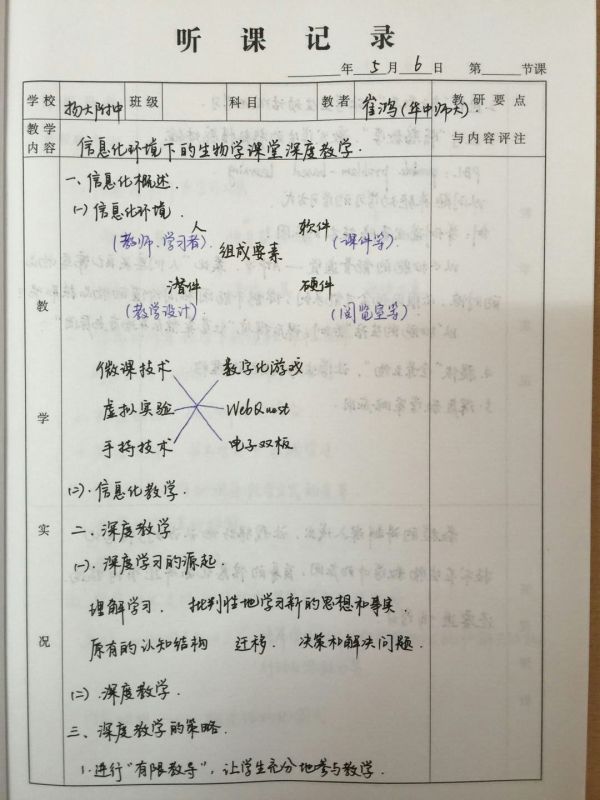 听课记录
年 5 月 6 日 第 节课
学校 扬大附中 班级 科目 教者 崔鸿(华中师大) 教研要点
教学内容 信息化环境下的生物学课堂深度教学. 与内容评注
一、信息化概述.
(一)信息化环境.
人 软件
(教师.学习者) 组成要素 (课件等)
潜件 硬件
(教学设计) (阅览室等)
教
微课技术 数字化游戏
学 虚拟实验 WebQuest
手持技术 电子双板
(二).信息化教学.
实 二.深度教学
(一).深度学习的源起.
理解学习. 批判性地学习新的思想和事实.
况 原有的认知结构 迁移. 决策和解决问题.
(二).深度教学.
三、深度教学的策略.
1.进行“有限教导”,让学生充分地参与教学.